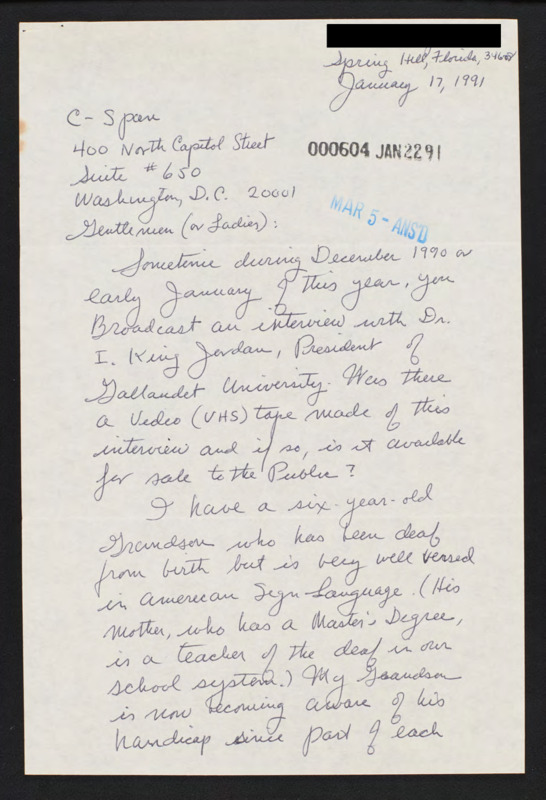 Spring Hill, Florida,
January 17, 1991
C-Span
400 North Capitol Street
Suite #650
Washington, D.C. 20001
000604 JAN 22 91
MAR 5 - ANS'D
Gentlemen (or Ladies):
Sometime during December 1990 or
early January of this year, you
Broadcast an interview with Dr.
I. King Jordan, President of
Gallaudet University. Was there
a Video (VHS) tape made of this
interview and if so, is it available
for sale to the Public?
I have a six-year-old
Grandson who has been deaf
from birth but is very well versed
in American Sign-Language. (His
Mother, who has a Master's Degree,
is a teacher of the deaf in our
school system.) My Grandson
is now becoming aware of his
handicap since part of each